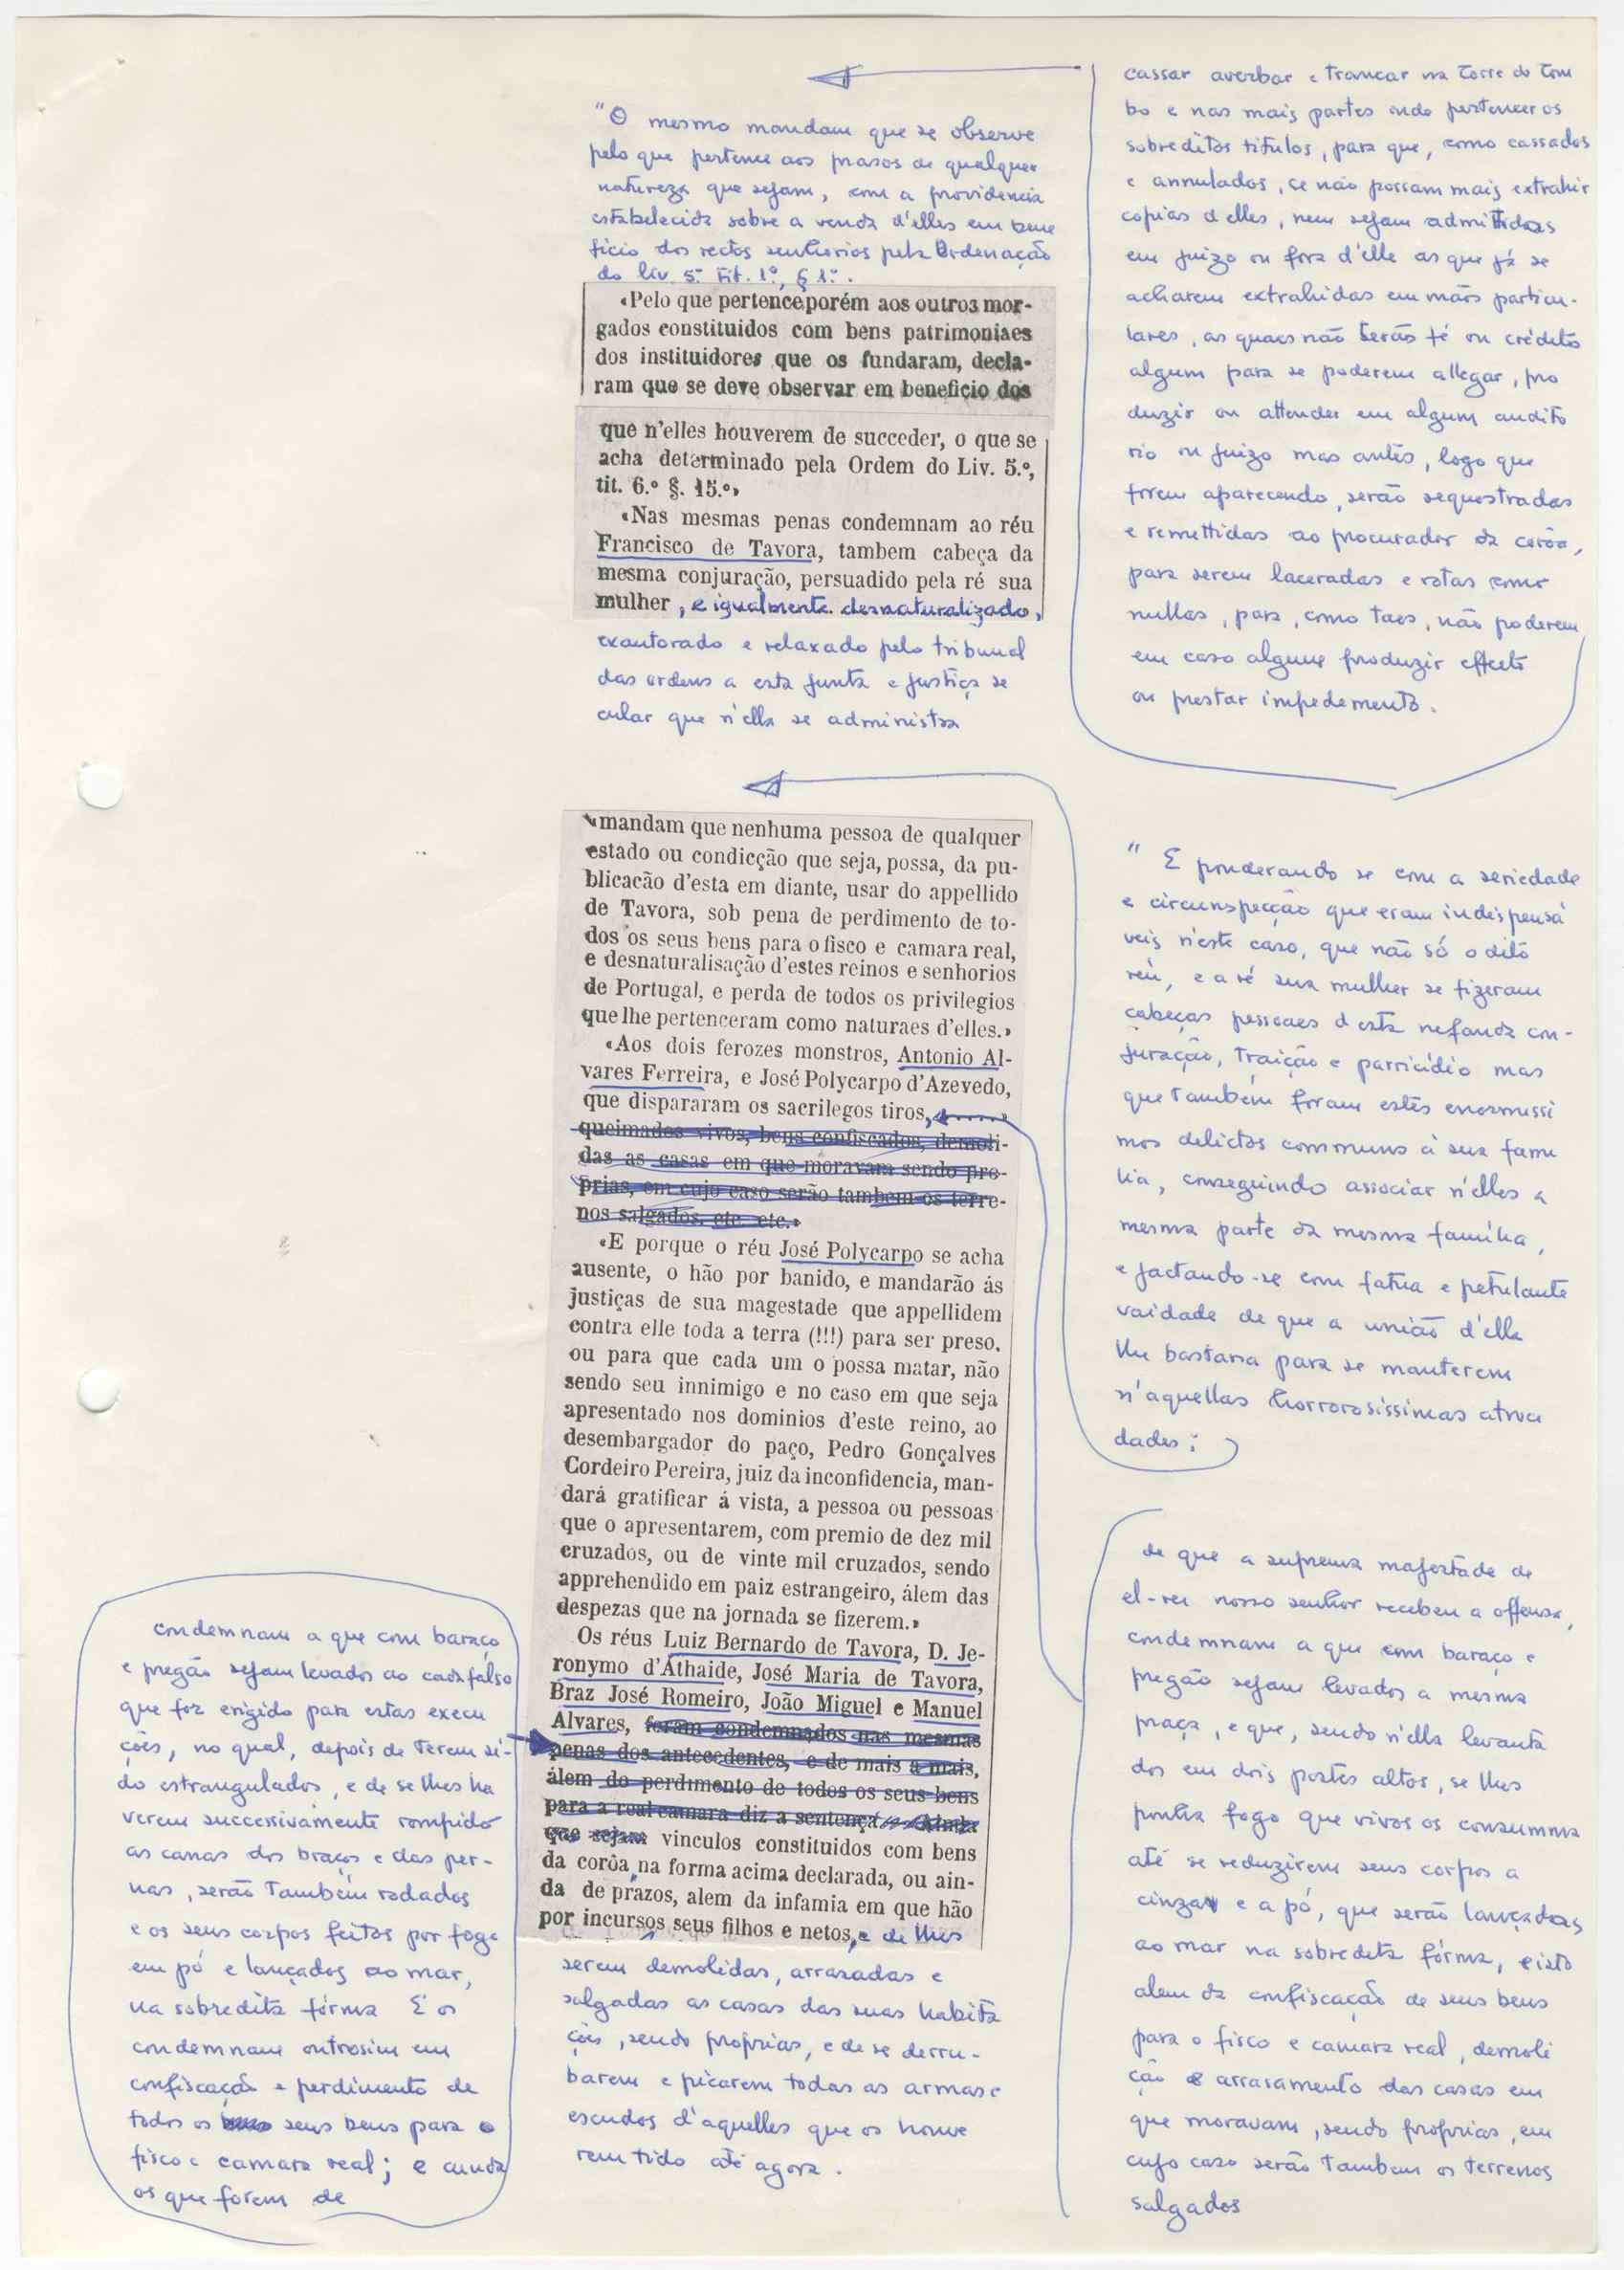 cassar averbar e trancar na Torre do Tom
bo e nas mais partes onde pertencer os
sobreditos titulos, para que, como cassados
e annulados, se não possam mais extrahir
copias d'elles, nem sejam admittidas
em juizo ou fora d'elle as que já se
acharem extrahidas em mãos particu-
lares, as quaes não terão fé ou crédito
algum para se poderem allegar, pro
duzir ou attender em algum audito
rio ou juizo mas antes, logo que
forem aparecendo, serão sequestradas
e remettidas ao procurador da corôa,
para serem laceradas e rotas como
nullas, para, como taes, não poderem
em caso algum produzir effeito
ou prestar impedimento.
"O mesmo mandam que se observe
pelo que pertence aos prasos de qualquer
natureza que sejam, com a providencia
estabelecida sobre a venda d'elles em bene
ficio dos rectos senhorios pela Ordenação
do liv. 5.º Tit. 1.º, § 1.º.
«Pelo que pertence porém aos outros mor-
gados constituidos com bens patrimoniaes
dos instituidores que os fundaram, decla-
ram que se deve observar em beneficio dos
que n'elles houverem de succeder, o que se
acha determinado pela Ordem do Liv. 5.º,
tit. 6.º §. 15.º»
«Nas mesmas penas condemnam ao réu
Francisco de Tavora, tambem cabeça da
mesma conjuração, persuadido pela ré sua
mulher, e igualmente desnaturalizado,
exautorado e relaxado pelo tribunal
das ordens a esta junta e justiça se
cular que n'ella se administra
" E ponderando se com a seriedade
e circunspecção que eram indispensá
veis n'este caso, que não só o dito
réu, e a ré sua mulher se fizeram
cabeças pessoaes d'esta nefanda con-
juração, traição e parricídio mas
que também foram estes enormissi
mos delictos communs à sua fami
lia, conseguindo associar n'elles a
mesma parte da mesma família,
e jactando-se com fatua e petulante
vaidade de que a união d'ella
lhe bastaria para se manterem
n'aquellas horrorosíssimas atroci
dades:
«mandam que nenhuma pessoa de qualquer
estado ou condicção que seja, possa, da pu-
blicacão d'esta em diante, usar do appellido
de Tavora, sob pena de perdimento de to-
dos os seus bens para o fisco e camara real,
e desnaturalisação d'estes reinos e senhorios
de Portugal, e perda de todos os privilegios
que lhe pertenceram como naturaes d'elles.»
«Aos dois ferozes monstros, Antonio Al-
vares Ferreira, e José Polycarpo d'Azevedo,
que dispararam os sacrilegos tiros,
queimados vivos, bens confiscados, demoli-
das as casas em que moravam sendo pro-
prias, em cujo caso serão tambem os terre-
nos salgados, etc. etc.»
de que a suprema majestade de
el-rei nosso senhor recebeu a offensa,
condemnam a que com baraço e
pregão sejam levados a mesma
praça, e que, sendo n'ella levanta
dos em dois postes altos, se lhes
ponha fogo que vivos os consumma
até se reduzirem seus corpos a
cinza e a pó, que serão lançados
ao mar na sobredita fórma, e isto
alem da confiscação de seus bens
para o fisco e camara real, demoli
ção e arrasamento das casas em
que moravam, sendo proprias, em
cujo caso serão tambem os terrenos
salgados
«E porque o réu José Polycarpo se acha
ausente, o hão por banido, e mandarão ás
justiças de sua magestade que appellidem
contra elle toda a terra (!!!) para ser preso,
ou para que cada um o possa matar, não
sendo seu innimigo e no caso em que seja
apresentado nos dominios d'este reino, ao
desembargador do paço, Pedro Gonçalves
Cordeiro Pereira, juiz da inconfidencia, man-
dará gratificar á vista, a pessoa ou pessoas
que o apresentarem, com premio de dez mil
cruzados, ou de vinte mil cruzados, sendo
apprehendido em paiz estrangeiro, álem das
despezas que na jornada se fizerem.»
Os réus Luiz Bernardo de Tavora, D. Je-
ronymo d'Athaide, José Maria de Tavora,
Braz José Romeiro, João Miguel e Manuel
Alvares, foram condemnados nas mesmas
penas dos antecedentes, e de mais a mais,
álem do perdimento de todos os seus bens
para a real camara diz a sentença
que sejam vinculos constituidos com bens
da corôa, na forma acima declarada, ou ain-
da de prazos, alem da infamia em que hão
por incursos seus filhos e netos, e de lhes
serem demolidas, arrasadas e
salgadas as casas das suas habita
ções, sendo proprias, e de se derru-
barem e picarem todas as armas e
escudos d'aquelles que os houve
rem tido até agora.
condemnam a que com baraço
e pregão sejam levados ao cadafalso
que foi erigido para estas execu
ções, no qual, depois de terem si-
do estrangulados, e de se lhes ha
verem successivamente rompido
as canas dos braços e das per-
nas, serão também rodados
e os seus corpos feitos por fogo
em pó e lançados ao mar,
na sobredita fórma E os
condemnam outrosim em
confiscação e perdimento de
todos os seus bens para o
fisco e camara real; e ainda
os que forem de